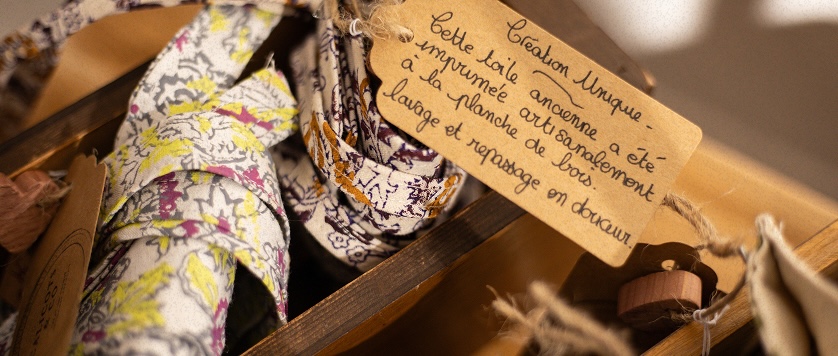 Création Unique -
Cette toile ancienne a été
imprimée artisanalement
à la planche de bois.
lavage et repassage en douceur.